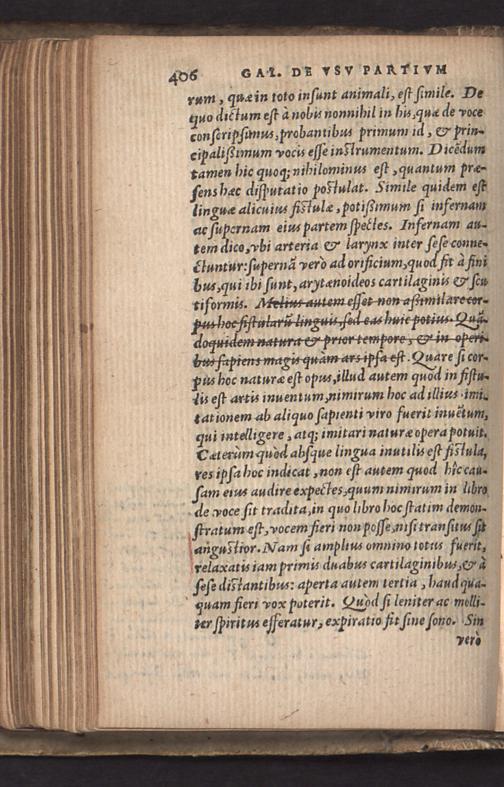 406 GAL. DE VSV PARTIVM
rum, quæ in toto insunt animali, est simile. De
quo dictum est à nobis nonnihil in his, quæ de voce
conscripsimus, probantibus primum id, & prin-
cipalißimum vocis esse instrumentum. Dicēdum
tamen hic quoq; nihilominus est, quantum præ-
sens hæc disputatio postulat. Simile quidem est
linguæ alicuius fistulæ, potißimum si infernam
ac supernam eius partem spectes. Infernam au-
tem dico, vbi arteria & larynx inter sese conne-
ctuntur: supernā verò ad orificium, quod fit à fini
bus, qui ibi sunt, arytænoideos cartilaginis & scu
tiformis. Melius autem esset non aßimilare cor-
pus hoc fistularū linguis, sed eas huic potius. Quā-
doquidem natura & prior tempore, & in operi-
bus sapiens magis quàm ars ipsa est. Quare si cor-
pus hoc naturæ est opus, illud autem quod in fistu-
lis est artis inuentum, nimirum hoc ad illius imi-
tationem ab aliquo sapienti viro fuerit inuētum,
qui intelligere, atq; imitari naturæ opera potuit.
Cæterum quòd absque lingua inutilis est fistula,
res ipsa hoc indicat, non est autem quod hîc cau-
sam eius audire expectes, quum nimirum in libro
de voce sit tradita, in quo libro hoc statim demon-
stratum est, vocem fieri non posse, nisi transitus sit
angustior. Nam si amplius omnino totus fuerit,
relaxatis iam primis duabus cartilaginibus, & à
sese distantibus: aperta autem tertia, haud qua-
quam fieri vox poterit. Quòd si leniter ac molli-
ter spiritus efferatur, expiratio fit sine sono. Sin
verò